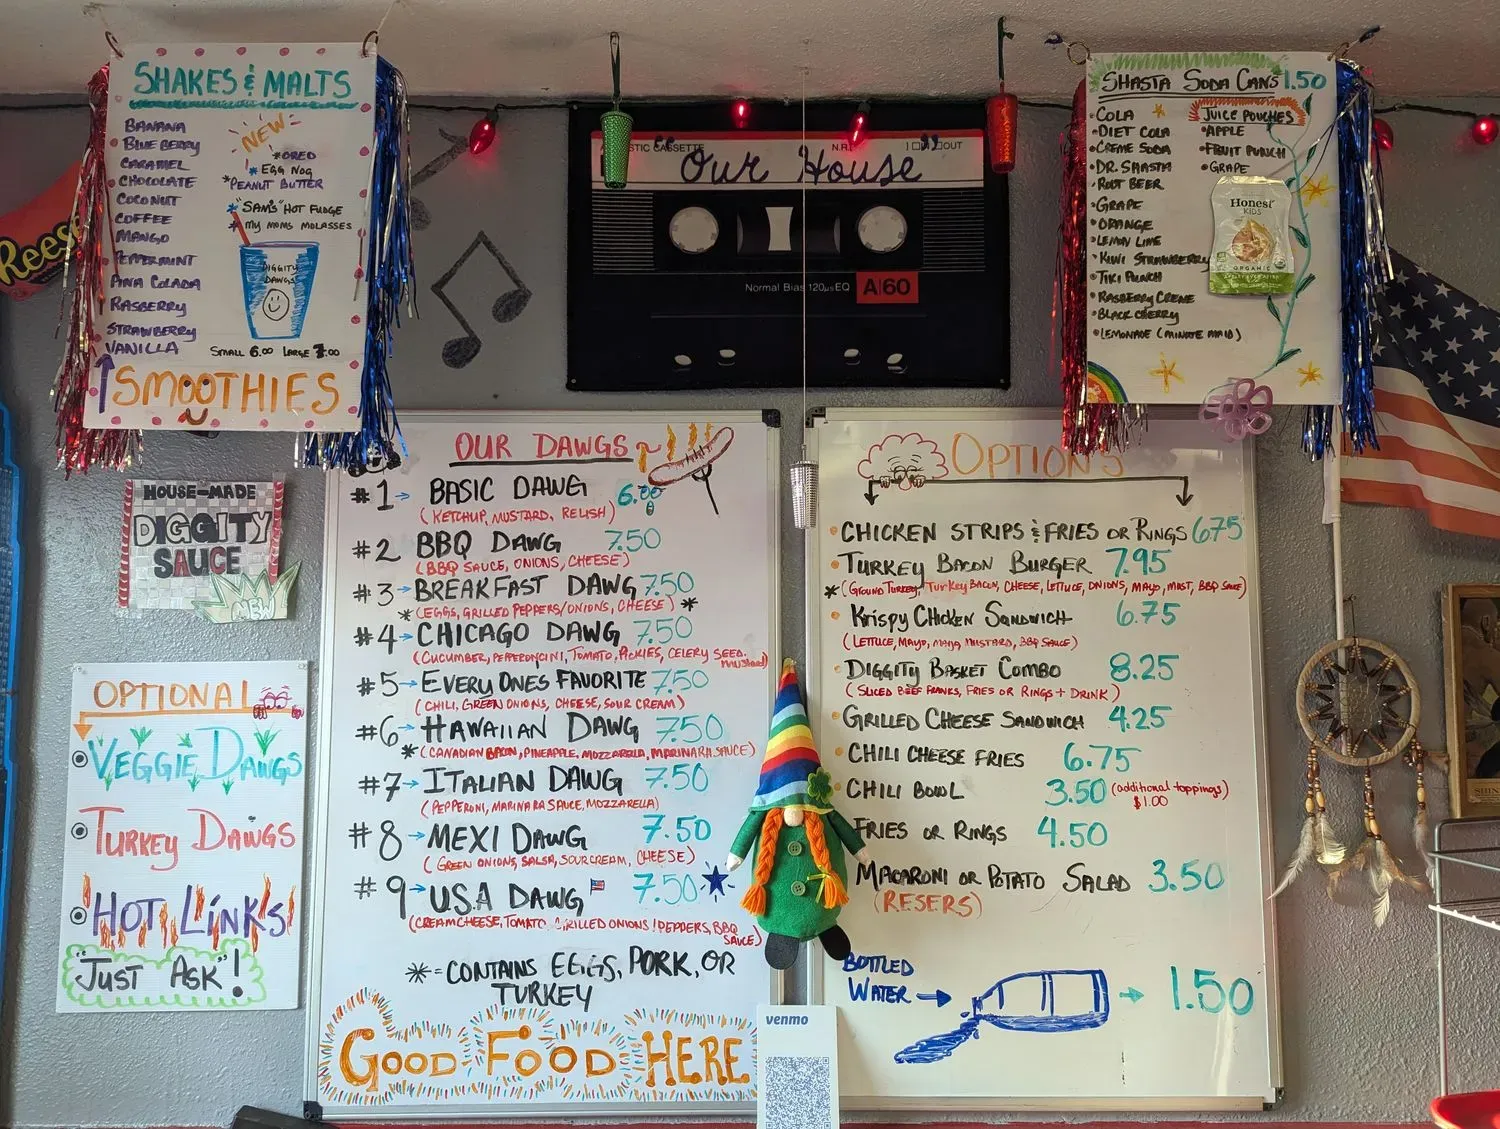 SHAKES & MALTS
BANANA
BLUEBERRY
CARAMEL
CHOCOLATE
COCONUT
COFFEE
MANGO
PEPPERMINT
PINA COLADA
RASBERRY
STRAWBERRY
VANILLA
NEW
*OREO
*EGG NOG
*PEANUT BUTTER
*"SAM'S" HOT FUDGE
*MY MOMS MOLASSES
DIGGITY
DAWGS
SMALL 6.00 LARGE 7.00
SMOOTHIES
Reese's
HOUSE-MADE
DIGGITY
SAUCE
NEW
OPTIONAL
VEGGIE DAWGS
TURKEY DAWGS
HOT LINKS
"JUST ASK"!
STIC CASSETTE
OUT
"Our House"
Normal Bias 120µsEQ
A|60
SHASTA SODA CANS 1.50
•COLA
•DIET COLA
•CREME SODA
•DR. SHASTA
•ROOT BEER
•GRAPE
•ORANGE
•LEMON LIME
•KIWI STRAWBERRY
•TIKI PUNCH
•RASBERRY CREME
•BLACK CHERRY
•LEMONADE (MINUTE MAID)
JUICE POUCHES
•APPLE
•FRUIT PUNCH
•GRAPE
Honest
KIDS
ORGANIC
OUR DAWGS
#1→ BASIC DAWG 6.00
(KETCHUP, MUSTARD, RELISH)
#2→ BBQ DAWG 7.50
(BBQ SAUCE, ONIONS, CHEESE)
#3→ BREAKFAST DAWG 7.50
*(EGGS, GRILLED PEPPERS/ONIONS, CHEESE)*
#4→ CHICAGO DAWG 7.50
(CUCUMBER, PEPPERONCINI, TOMATO, PICKLES, CELERY SEED.
MUSTARD)
#5→ EVERYONES FAVORITE 7.50
(CHILI, GREEN ONIONS, CHEESE, SOUR CREAM)
#6→ HAWAIIAN DAWG 7.50
*(CANADIAN BACON, PINEAPPLE, MOZZARELLA, MARINARA SAUCE)
#7→ ITALIAN DAWG 7.50
(PEPPERONI, MARINARA SAUCE, MOZZARELLA)
#8→ MEXI DAWG 7.50
(GREEN ONIONS, SALSA, SOUR CREAM, CHEESE)
#9→ U.S.A DAWG 7.50
(CREAM CHEESE, TOMATO, GRILLED ONIONS/PEPPERS, BBQ
SAUCE)
*=CONTAINS EGGS, PORK, OR
TURKEY
GOOD FOOD HERE
OPTIONS
CHICKEN STRIPS & FRIES OR RINGS 6.75
TURKEY BACON BURGER 7.95
*(GROUND TURKEY, TURKEY BACON, CHEESE, LETTUCE, ONIONS, MAYO, MUST, BBQ SAUCE)
KRISPY CHICKEN SANDWICH 6.75
(LETTUCE, MAYO, MUSTARD, BBQ SAUCE)
DIGGITY BASKET COMBO 8.25
(SLICED BEEF FRANKS, FRIES OR RINGS + DRINK)
GRILLED CHEESE SANDWICH 4.25
CHILI CHEESE FRIES 6.75
CHILI BOWL 3.50 (additional toppings)
$1.00
FRIES OR RINGS 4.50
MACARONI OR POTATO SALAD 3.50
(RESERS)
BOTTLED
WATER → → 1.50
venmo